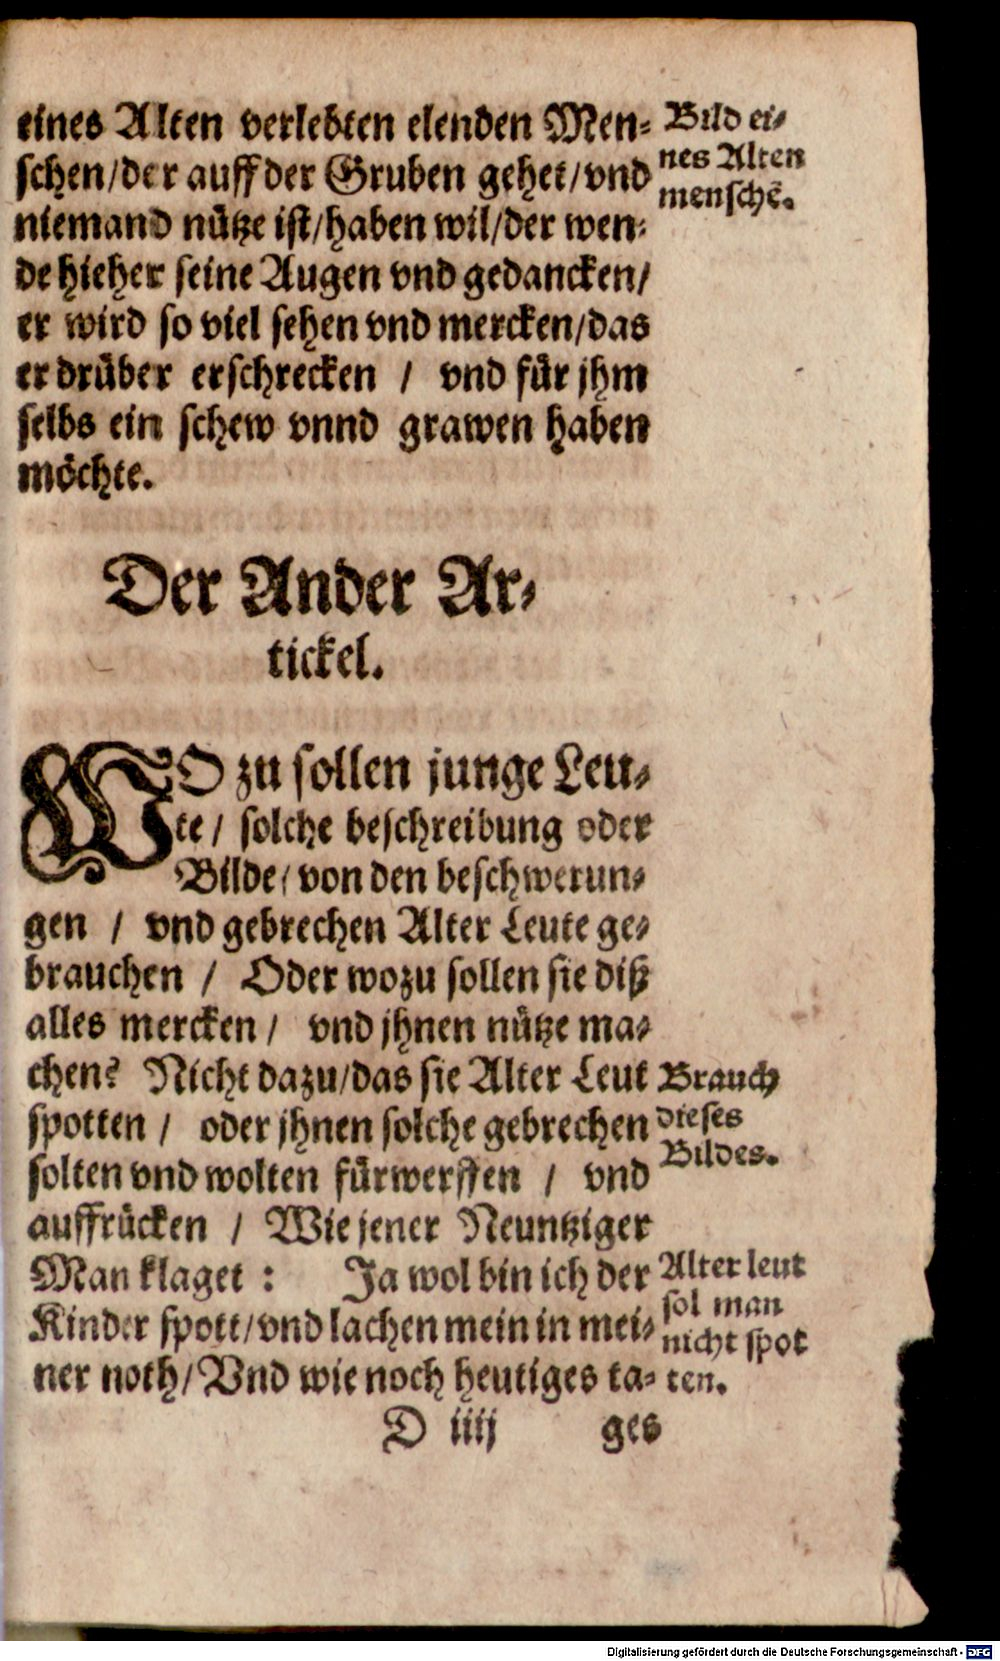 eines Alten verlebten elenden Men-
schen/der auff der Gruben gehet/vnd
niemand nütze ist/haben wil/der wen-
de hieher seine Augen vnd gedancken/
er wird so viel sehen vnd mercken/das
er drüber erschrecken / vnd für jhm
selbs ein schew vnnd grawen haben
möchte.
Bild ei-
nes Alten
menschē.
Der Ander Ar-
tickel.
WO zu sollen junge Leu-
te / solche beschreibung oder
Bilde/ von den beschwerun-
gen / vnd gebrechen Alter Leute ge-
brauchen / Oder wozu sollen sie diß
alles mercken / vnd jhnen nütze ma-
chen? Nicht dazu/das sie Alter Leut
spotten / oder jhnen solche gebrechen
solten vnd wolten fürwerffen / vnd
auffrücken / Wie jener Neuntziger
Man klaget : Ja wol bin ich der
Kinder spott/vnd lachen mein in mei-
ner noth/Vnd wie noch heutiges ta-
Brauch
dieses
Bildes.
Alter leut
sol man
nicht spot
ten.
D iiij ges
Digitalisierung gefördert durch die Deutsche Forschungsgemeinschaft - DFG